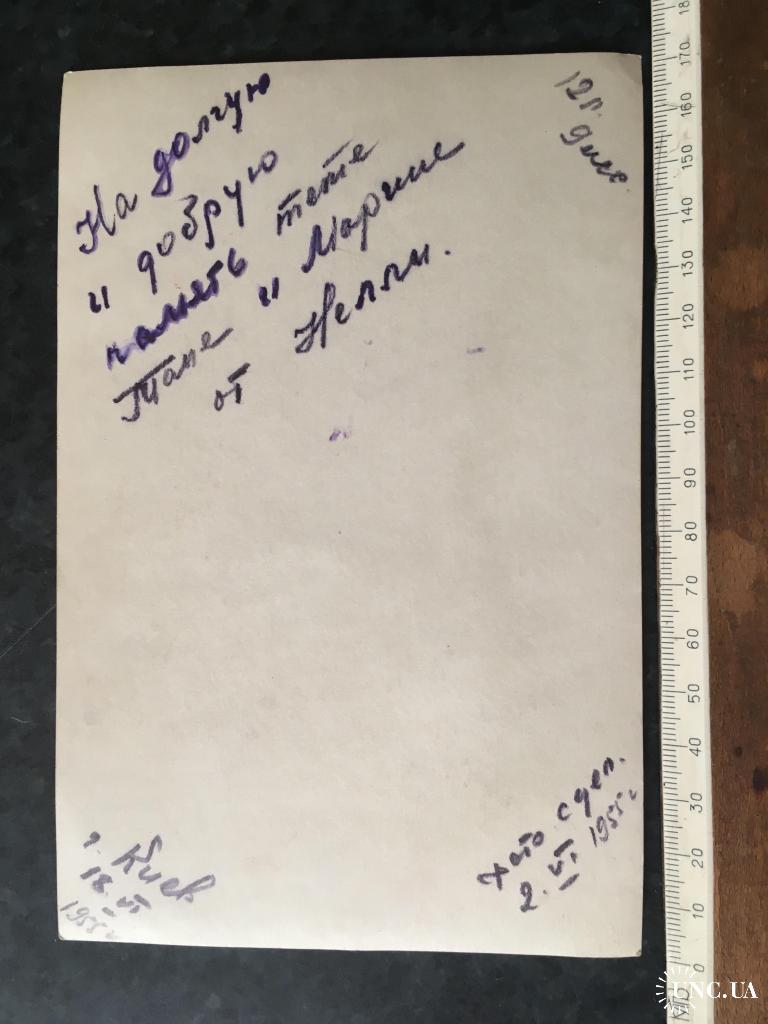 12 л.
9 мес.
На долгую
и добрую
память тете
Тане и Марине
от Нелли.
г. Киев
18. VI
1955 г
фото сдел.
2. VI 1955 г
180
170
160
150
140
130
120
110
100
90
80
70
60
50
40
30
20
10
0
UNC.UA